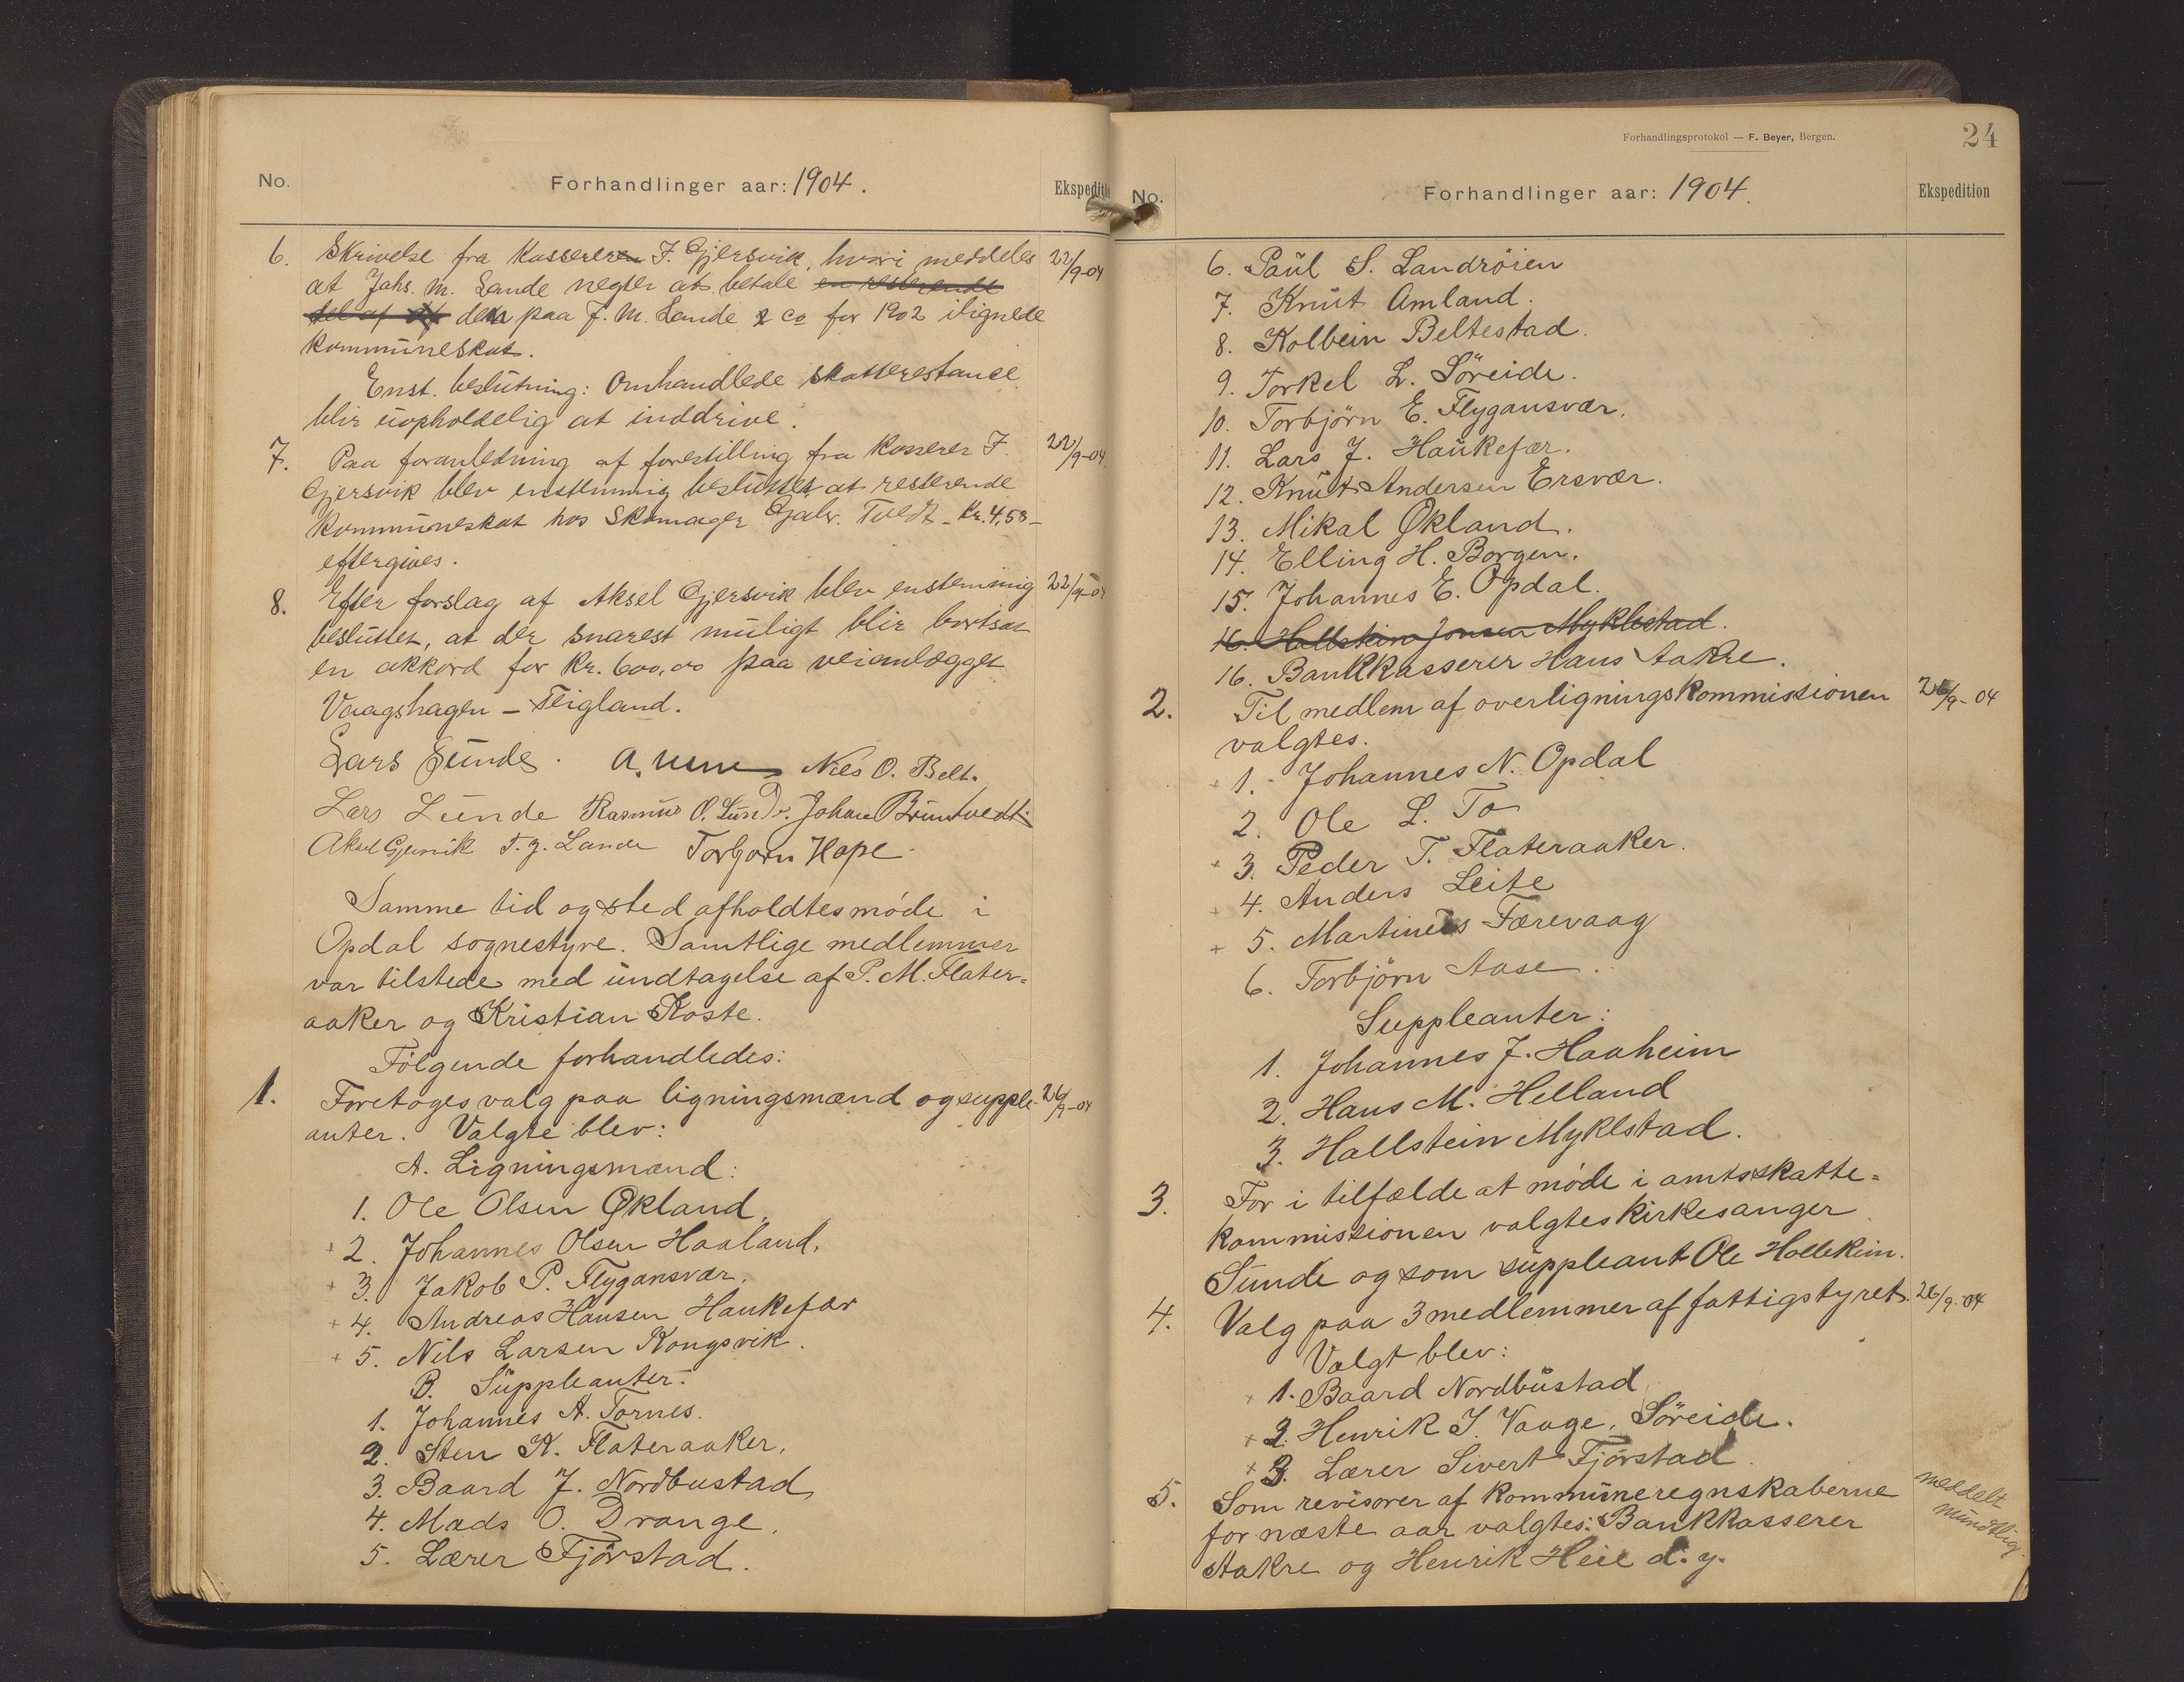 No. Forhandlinger aar: 1904. Ekspediti
6. Skrivelse fra Kassereren J. Gjersvik, hvori meddeles 22/9-04
at Johs. M. Sande negter at betale en resterende
del af den paa J. M. Sande & Co for 1902 ilignede
kommuneskat.
Enst. beslutning: Omhandlede skatterestance
blir uopholdelig at inddrive.
7. Paa foranledning af forestilling fra Kasserer J. 22/9-04
Gjersvik blev enstemmig besluttet at resterende
Kommuneskat hos Skomager Tvedt - Kr. 4,58 -
eftergives.
8. Efter forslag af Aksel Gjersvik blev enstemmig 22/9-04
besluttet, at der snarest muligt blir bortsat
en akkord for Kr. 600,00 paa veianlægget
Vaagshagen - Teigland.
Lars Sunde. Nils O. Belt.
Lars Lunde Rasmus O. Lunde. Johan Bruntvedt.
Aksel Gjersvik T. J. Lande Torbjørn Hope
Samme tid og sted afholdtes møde i
Opdal sognestyre. Samtlige medlemmer
var tilstede med undtagelse af P. M. Flater-
aaker og Kristian Koste.
Følgende forhandledes:
1. Foretoges valg paa ligningsmænd og supple- 26/9-04
anter. Valgte blev:
A. Ligningsmænd:
1. Ole Olsen Økland.
+ 2. Johannes Olsen Haaland.
+ 3. Jakob P. Flygansvær.
+ 4. Andreas Hansen Haukefær
+ 5. Nils Larsen Kongsvik.
B. Suppleanter:
1. Johannes A. Tornes.
2. Sten K. Flateraaker.
3. Baard J. Nordbustad
4. Mads O. Drange.
5. Lærer Fjørstad.
Forhandlingsprotokol — F. Beyer, Bergen. 24
No. Forhandlinger aar: 1904. Ekspedition
6. Paul S. Landrøien
7. Knut Amland.
8. Kolbein Beltestad.
9. Torkel L. Søreide.
10. Torbjørn E. Flygansvær.
11. Lars J. Haukefær.
12. Knut Andersen Ersvær.
13. Mikal Økland.
14. Elling H. Borgen.
15. Johannes E. Opdal.
16. Hallstein Jonsen Myklestad.
16. Bankkasserer Hans Aakre.
2. Til medlem af overligningskommissionen 26/9-04
valgtes.
+ 1. Johannes N. Opdal
2. Ole L. To
+ 3. Peder T. Flateraaker.
+ 4. Anders Leite
+ 5. Martinus Færevaag
6. Torbjørn Aase.
Suppleanter:
1. Johannes J. Haaheim
2. Hans M. Helland
3. Hallstein Myklstad.
3. For i tilfælde at møde i amtsskatte-
kommissionen valgtes kirkesanger
Sunde og som suppleant Ole Hollekim.
4. Valg paa 3 medlemmer af fattigstyret. 26/9-04
Valgt blev:
+ 1. Baard Nordbustad
+ 2. Henrik J. Vaage, Søreide.
+ 3. Lærer Sivert Fjørstad.
5. Som revisorer af kommuneregnskaberne meddelt
for næste aar valgtes: Bankkasserer mundtlig.
Aakre og Henrik Heie d. y.